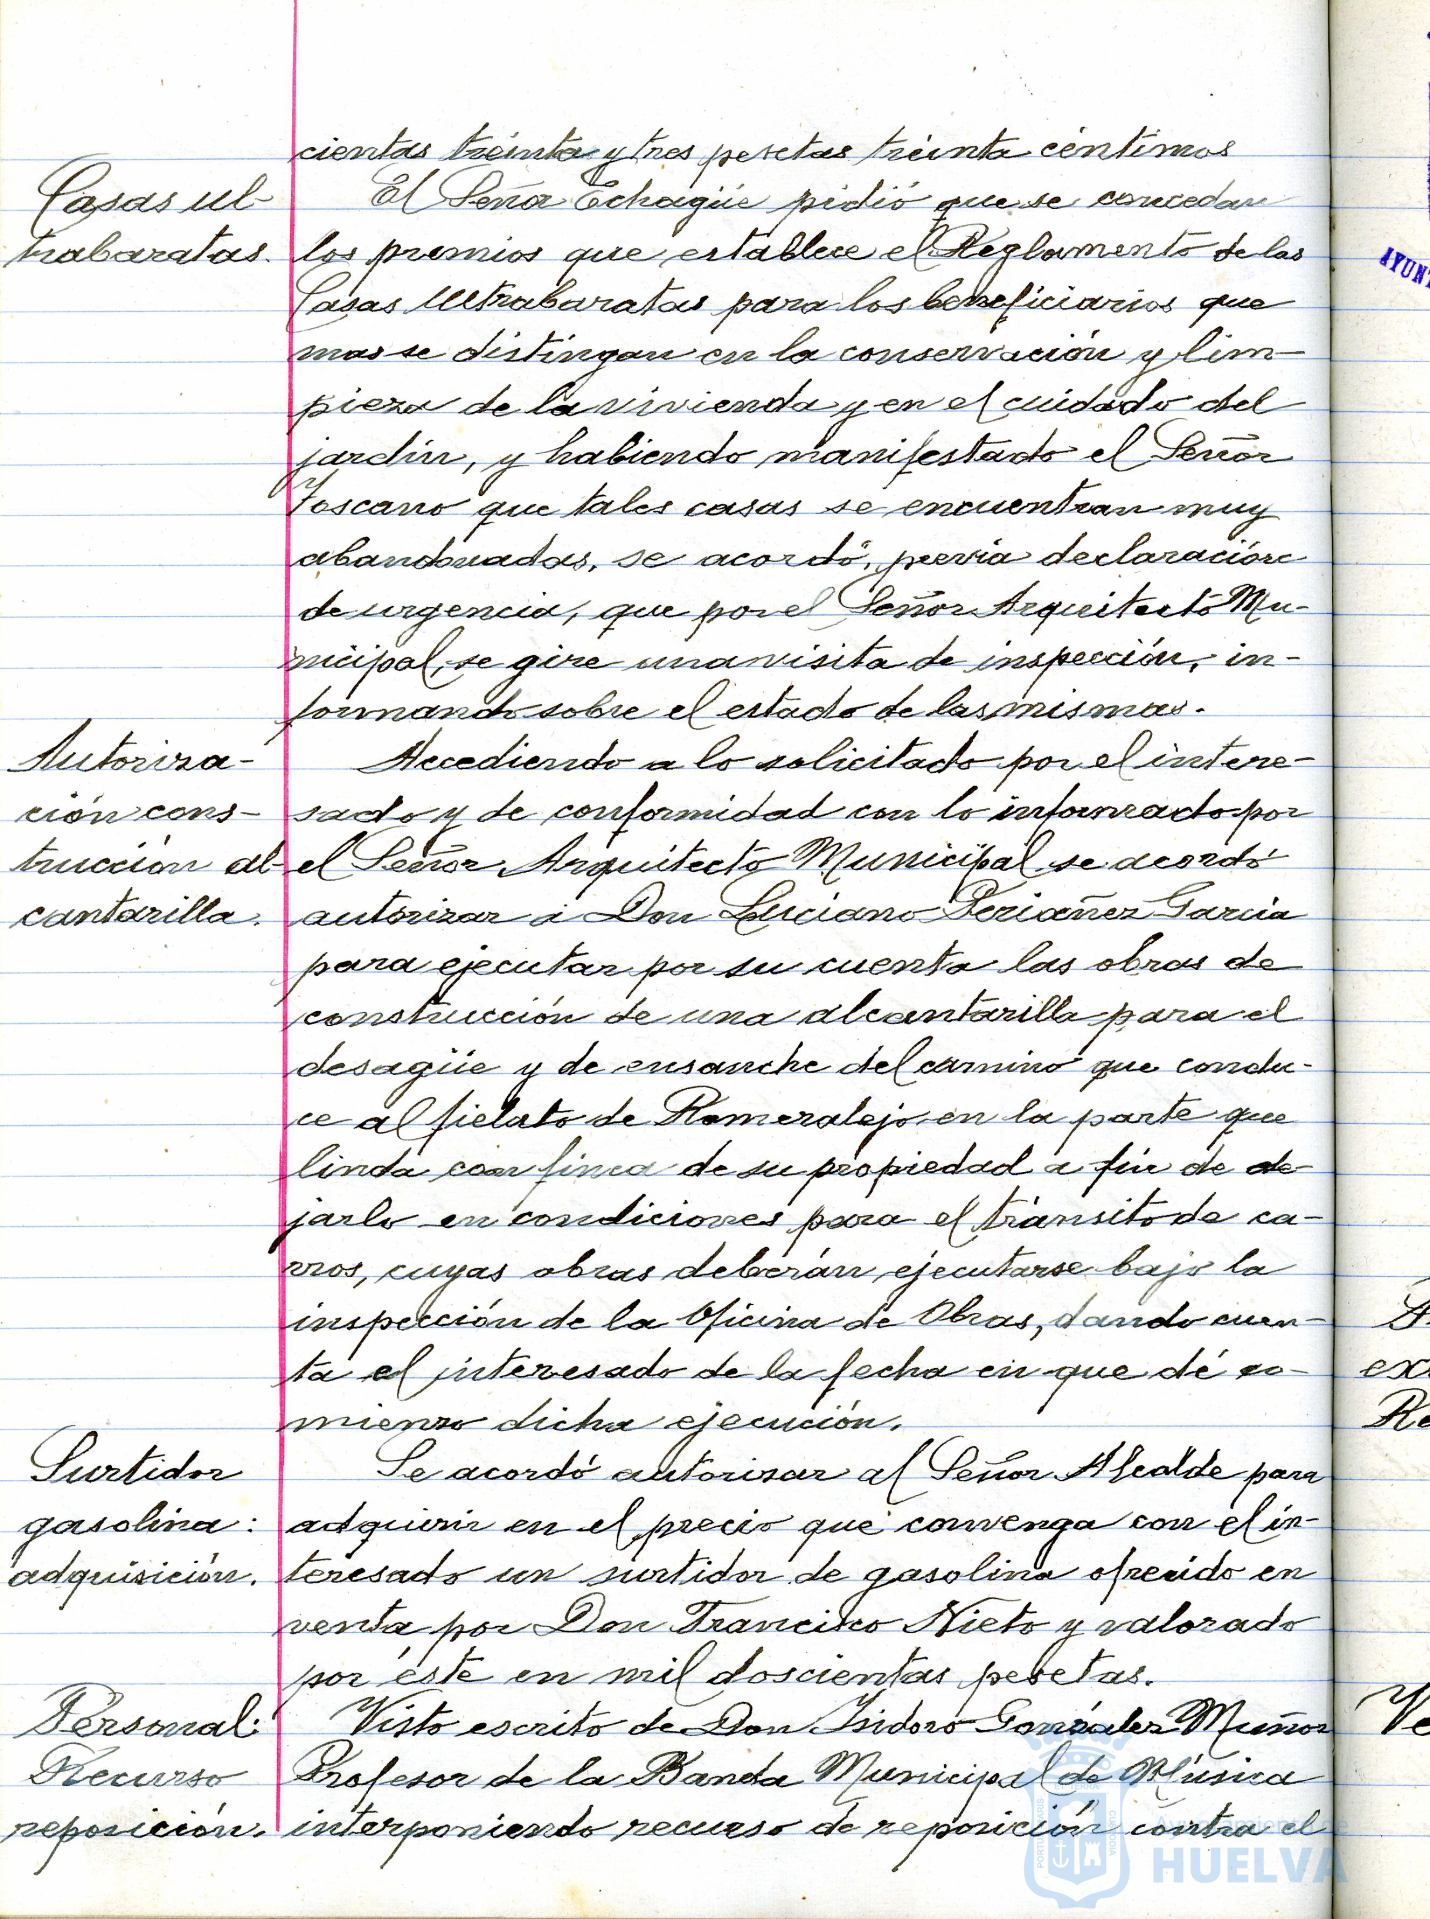 cientas treinta y tres pesetas treinta céntimos
Casas ul-
trabaratas.
El Señor Echagüe pidió que se concedan
los premios que establece el Reglamento de las
Casas Ultrabaratas para los beneficiarios que
mas se distingan en la conservación y lim-
pieza de la vivienda y en el cuidado del
jardín, y habiendo manifestado el Señor
Toscano que tales casas se encuentran muy
abandonadas, se acordó, previa declaración
de urgencia, que por el Señor Arquitecto Mu-
nicipal, se gire una visita de inspección, in-
formando sobre el estado de las mismas.
Autoriza-
ción cons-
trucción al-
cantarilla.
Accediendo a lo solicitado por el intere-
sado y de conformidad con lo informado por
el Señor Arquitecto Municipal se acordó
autorizar a Don Luciano Periañez García
para ejecutar por su cuenta las obras de
construcción de una alcantarilla para el
desagüe y de ensanche del camino que condu-
ce al fielato de Romeralejo en la parte que
linda con finca de su propiedad a fin de de-
jarlo en condiciones para el tránsito de ca-
rros, cuyas obras deberán ejecutarse bajo la
inspección de la Oficina de Obras, dando cuen-
ta el interesado de la fecha en que dé co-
mienzo dicha ejecución.
Surtidor
gasolina:
adquisición.
Se acordó autorizar al Señor Alcalde para
adquirir en el precio que convenga con el in-
teresado un surtidor de gasolina ofrecido en
venta por Don Francisco Nieto y valorado
por éste en mil doscientas pesetas.
Personal:
Recurso
reposición.
Visto escrito de Don Isidoro González Muñoz
Profesor de la Banda Municipal de Música
interponiendo recurso de reposición contra el
HUELVA
AYUN